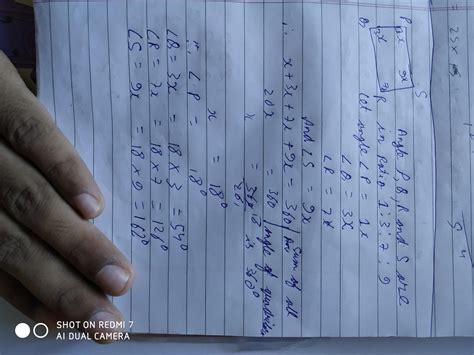 = 25x
S
P 1x 9x
Q 3x 7x R
Angle P Q, R and S are
in Ratio 1:3:7:9
let angle ∠P = 1x
∠Q = 3x
∠R = 7x
And ∠S = 9x
∴ x + 3x + 7x + 9x = 360 Sum of all
20x = 360 angle of
x = 360 18
20
x = 18°
∴ ∠P = 18°
∠Q = 3x = 18 × 3 = 54°
∠R = 7x = 18 × 7 = 126°
∠S = 9x = 18 × 9 = 162°
SHOT ON REDMI 7
AI DUAL CAMERA